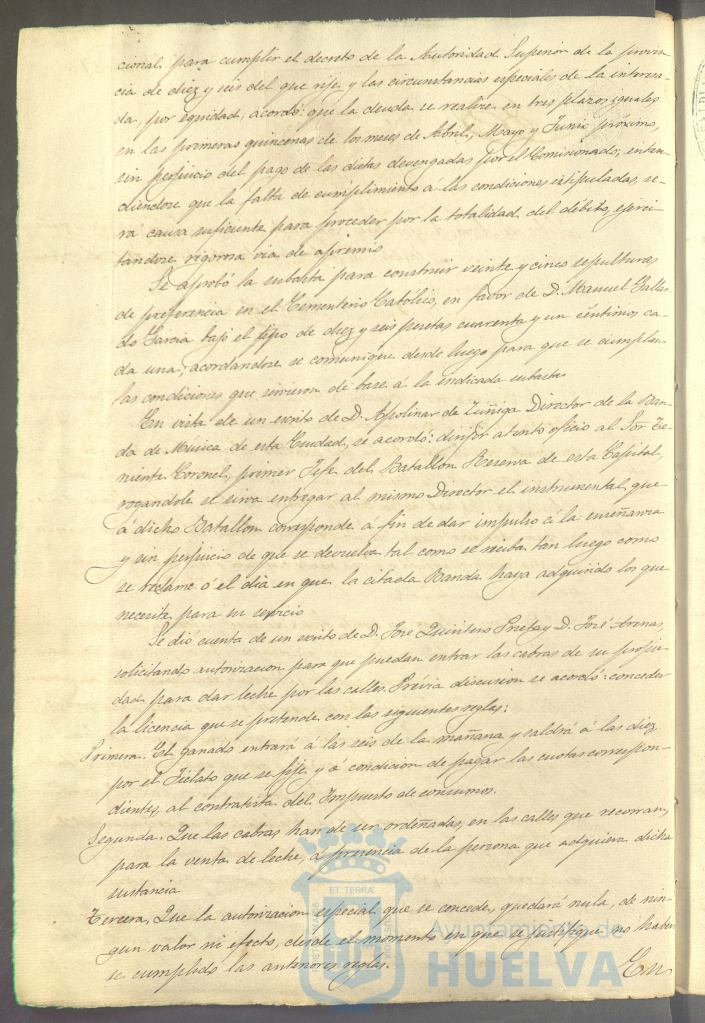 cional para cumplir el decreto de la Autoridad Superior de la provin-
cia de diez y seis del que rije y las circunstancias especiales de la interesa-
da, por equidad, acordó: que la deuda se realize en tres plazos iguales
en las primeras quincenas de los meses de Abril, Mayo y Junio próximo,
sin perjuicio del pago de las dietas devengadas por el Comisionado; enten-
diendose que la falta de cumplimiento á las condiciones estipuladas, se-
rá causa suficiente para proceder por la totalidad del débito, ejerci-
tandose rigorosa via de apremio
Se aprobó la subasta para construir veinte y cinco sepulturas
de preferencia en el Cementerio Católico, en favor de D. Manuel Gallar-
do Garcia bajo el tipo de diez y seis pesetas cuarenta y un céntimos ca-
da una; acordandose se comunique desde luego para que se cumplan
las condiciones que sirvieron de base á la indicada subasta
En vista de un escrito de D. Apolinar de Zúñiga Director de la Ban-
da de Música de esta Ciudad, se acordó: dirijir atento oficio al Sor Te-
niente Coronel, primer Jefe del Batallon Reserva de esta Capital,
rogandole se sirva entregar al mismo Director el instrumental que
á dicho Batallon corresponde a fin de dar impulso á la enseñanza
y sin perjuicio de que se devuelva tal como se reciba tan luego como
se reclame ó el dia en que la citada Banda haya adquirido los que
necesita para su servicio
Se dió cuenta de un escrito de D. José Quintero y D. José Arenas,
solicitando autorizacion para que puedan entrar las cabras de su propie-
dad para dar leche por las calles. Prévia discusion se acordó: conceder
la licencia que se pretende con las siguientes reglas:
Primera. El ganado entrará á las seis de la mañana y saldrá á las diez
por el Fielato que se fije y á condicion de pagar las cuotas correspon-
dientes, al contratista del Impuesto de consumos.
Segunda. Que las cabras han de ser ordeñadas, en las calles que recorran,
para la venta de leche, á presencia de la persona que adquiera dicha
sustancia
Tercera. Que la autorizacion especial que se concede, quedará nula, de nin-
gun valor ni efecto, desde el momento en que se justifique no haber-
se cumplido las anteriores reglas.
En
ET TERRÆ
Ayuntamiento de
HUELVA